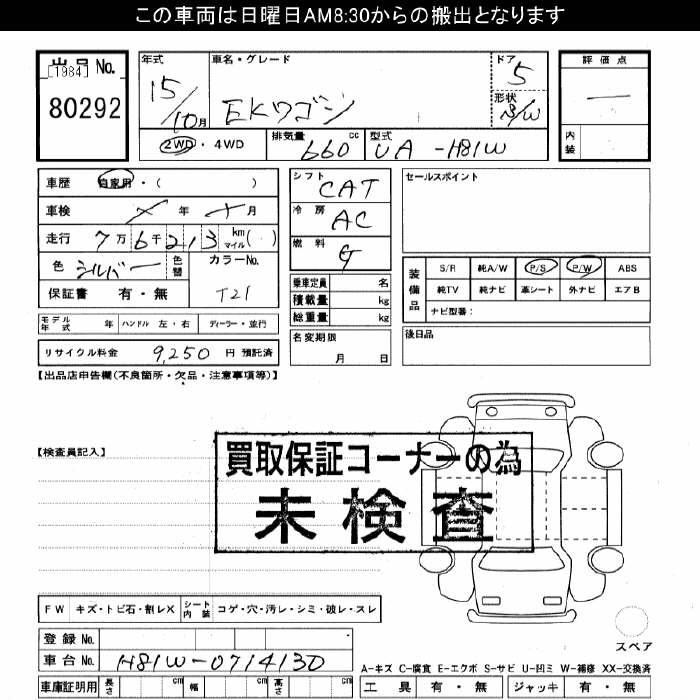 この車両は日曜日AM8:30からの搬出となります
出品No. [1984]
80292
年式 15/10月
車名・グレード EKワゴン
ドア 5
形状 S/W
評価点 —
内装
2WD・4WD
排気量 660 cc
型式 UA -H81W
車歴 自家用・( )
車検 年 月
走行 7万6千213 km マイル( )
色 シルバー 色替
カラーNo. T21
保証書 有・無
シフト CAT
冷房 AC
燃料 G
乗車定員 名
積載量 kg
総重量 kg
セールスポイント
装備品 S/R 純A/W P/S P/W ABS
純TV 純ナビ 革シート 外ナビ エアB
ナビ型番:
モデル年式 年 ハンドル 左・右 ディーラー・並行
リサイクル料金 9,250 円 預託済
名変期限 月 日
後日品
【出品店申告欄(不良箇所・欠品・注意事項等)】
【検査員記入】
買取保証コーナーの為
未検査
FW キズ・トビ石・割レX シート内装 コゲ・穴・汚レ・シミ・破レ・スレ
スペア
登録No.
車台No. H81W-0714130
A-キズ C-腐食 E-エクボ S-サビ U-凹ミ W-補修 XX-交換済
車庫証明用 長さ cm 幅 cm 高さ cm
工具 有・無 ジャッキ 有・無